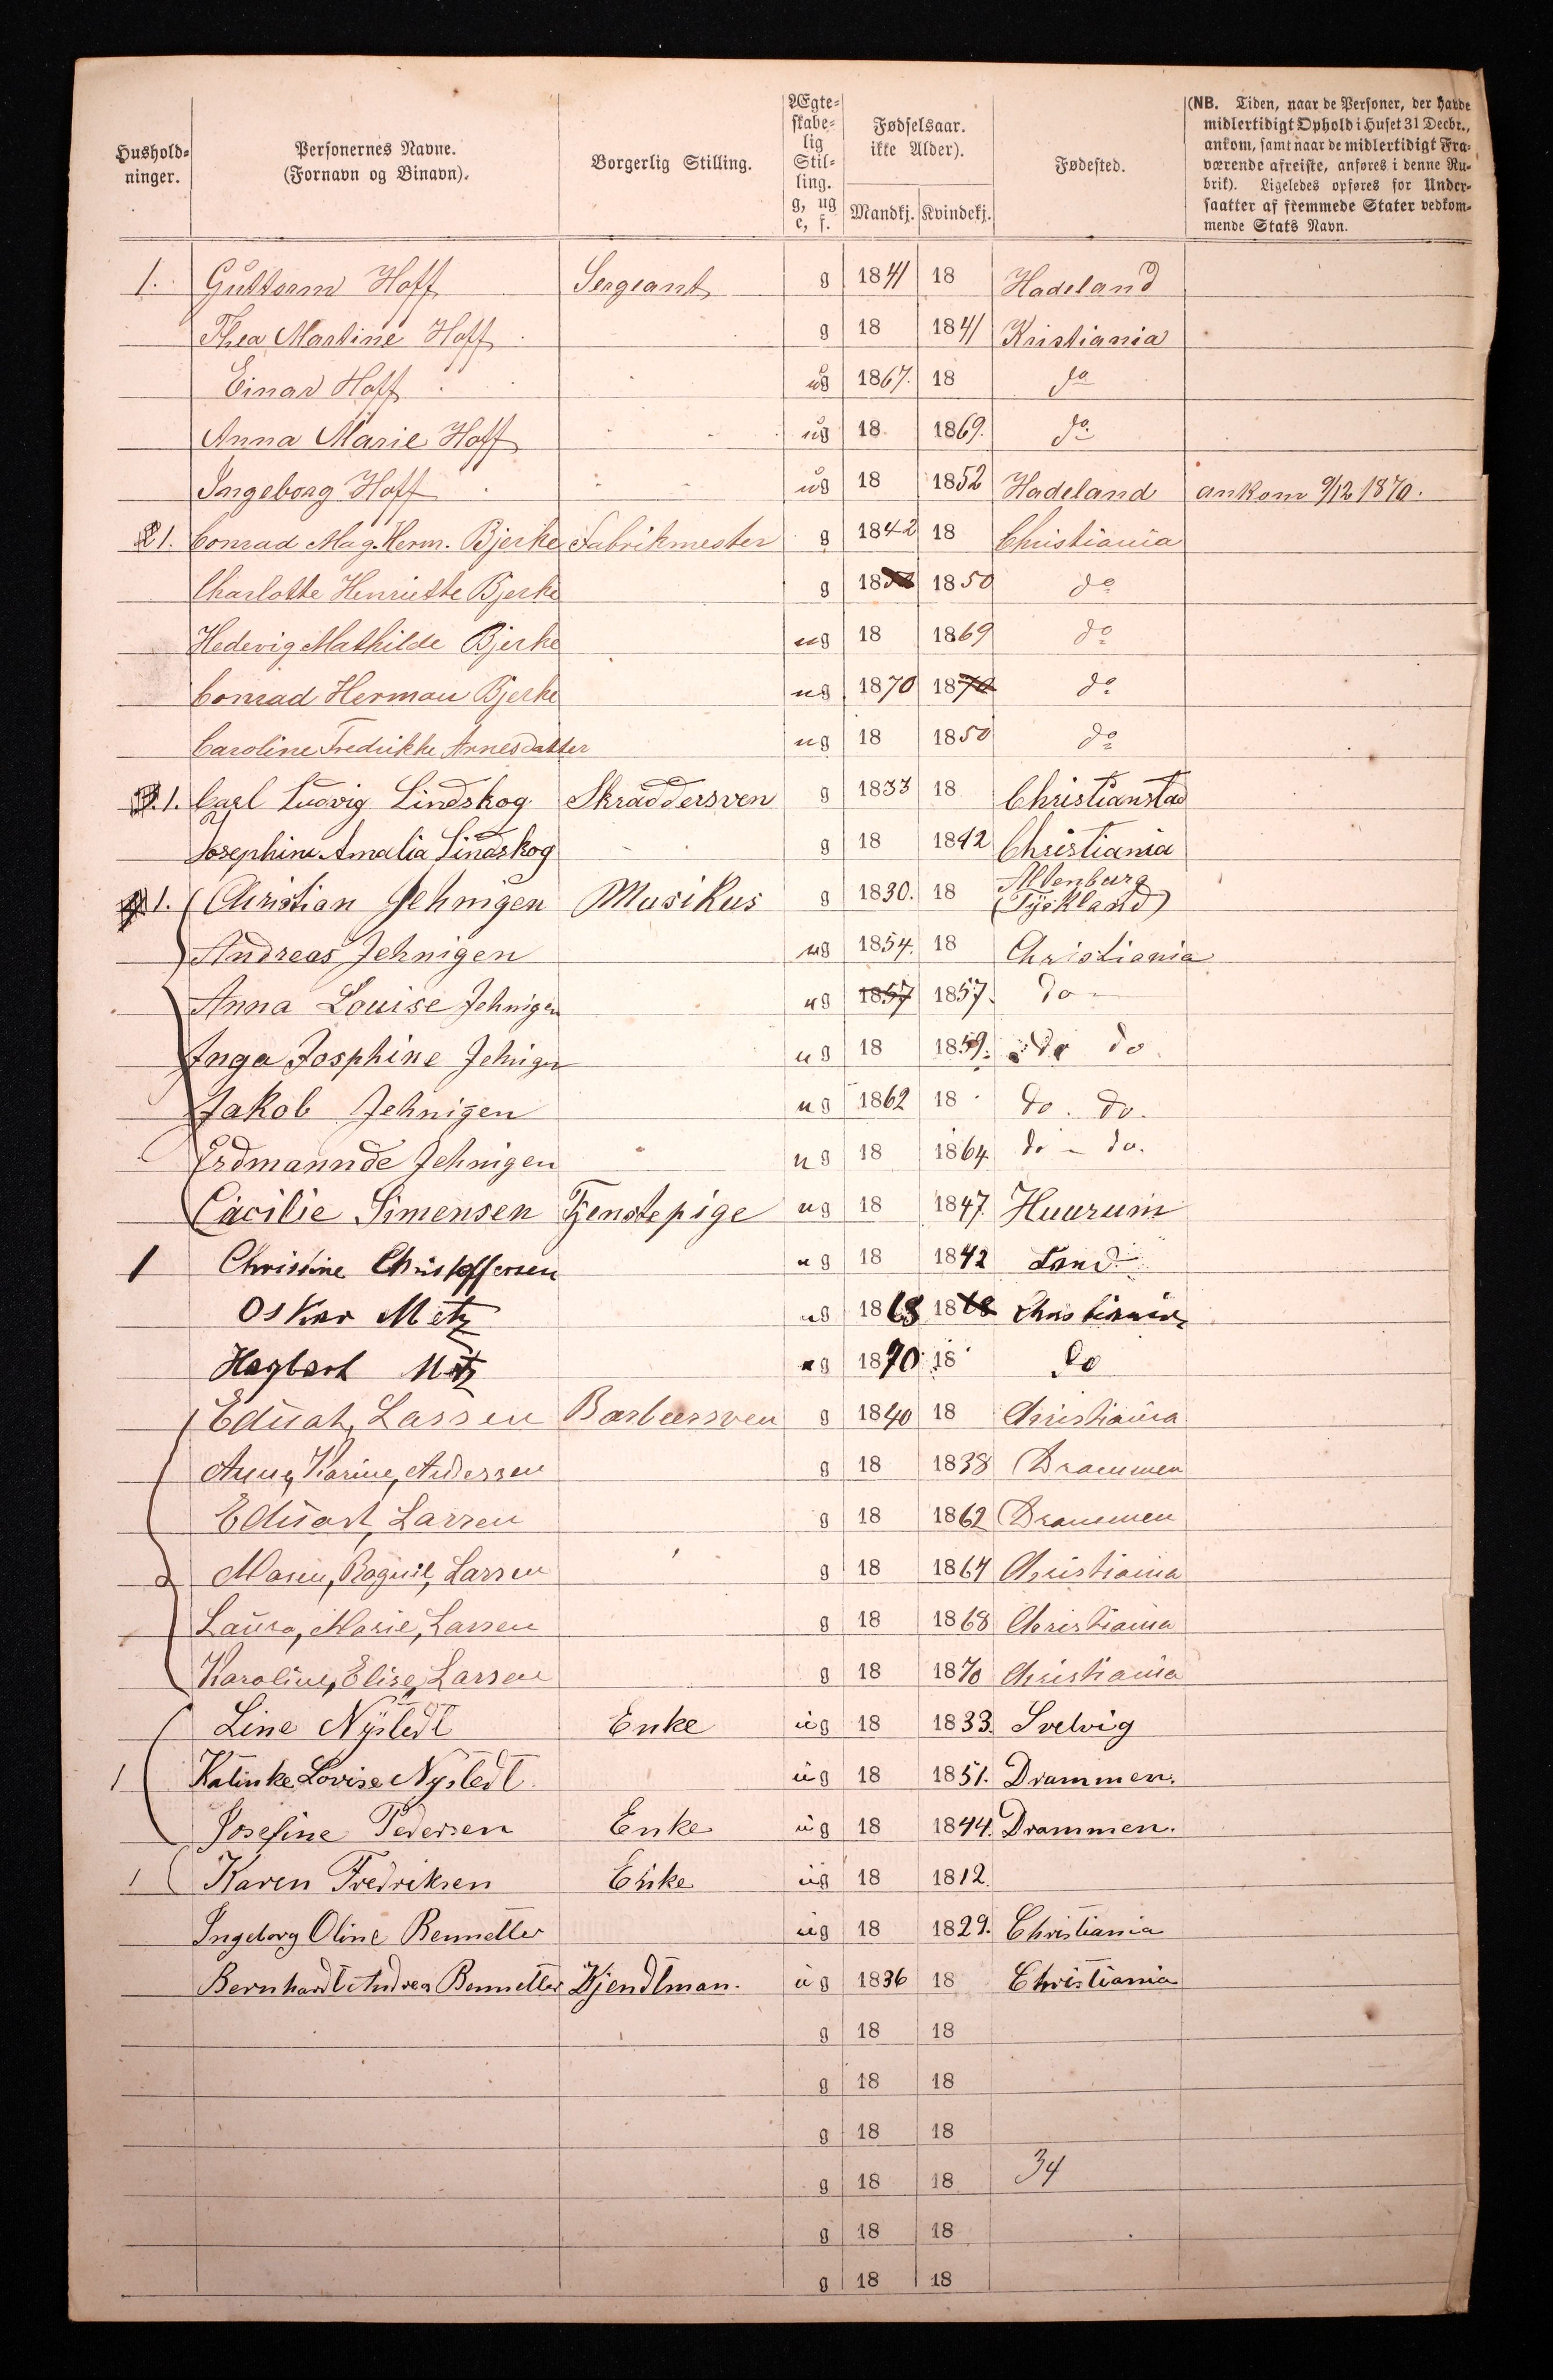 Hushold-
ninger.
Personernes Navne.
(Fornavn og Binavn).
Borgerlig Stilling.
Ægte-
skabe-
lig
Stil-
ling.
g, ug
e, f.
Fødselsaar.
ikke Alder).
Mandkj. Kvindekj.
Fødested.
(NB. Tiden, naar de Personer, der havde
midlertidigt Ophold i Huset 31 Decbr.,
ankom, samt naar de midlertidigt Fra-
værende afreiste, anføres i denne Ru-
brik). Ligeledes opføres for Under-
saatter af fremmede Stater vedkom-
mende Stats Navn.
1. Guttorm Hoff Sergeant g 1841 18 Hadeland
Thea Martine Hoff g 18 1841 Kristiania
Einar Hoff ug 1867. 18 do
Anna Marie Hoff ug 18 1869. do
Ingeborg Hoff ug 18 1852 Hadeland ankom 9/12 1870.
1. Conrad Mag. Herm. Bjerke Fabrikmester g 1842 18 Christiania
Charlotte Henriette Bjerke g 18 1850 do
Hedevig Mathilde Bjerke ug 18 1869 do
Conrad Herman Bjerke ug 1870 1870 do
Caroline Fredrikke Arnesdatter ug 18 1850 do
1. Carl Ludvig Lindskog Skraddersven g 1833 18 Christianstad
Josephine Amalia Lindskog g 18 1842 Christiania
1. Christian Jehnigen Musikus g 1830. 18 Altenburg
(Tyskland)
Andreas Jehnigen ug 1854. 18 Christiania
Anna Louise Jehnigen ug 1857 1857. do
Inga Josphine Jehnigen ug 18 1859. do do
Jakob Jehnigen ug 1862 18 do. do.
Erdmannde Jehnigen ug 18 1864 do - do.
Cacilie Simensen Tjenstepige ug 18 1847. Huurum
1 Christine Christoffersen ug 18 1842 Land
Oskar Metz ug 1868 1868 Christiania
Hagbart Metz ug 1870 18 do
Eduat, Lassen Barbersven g 1840 18 Christiania
Anne, Karine, Andersen g 18 1838 Drammen
Eduart, Larsen g 18 1862 Drammen
Maren, Ragnil, Larsen g 18 1864 Christiania
Laura, Marie, Larsen g 18 1868 Christiania
Karoline, Elise, Larsen g 18 1870 Christiania
Line Nystedt Enke ug 18 1833. Svelvig
1 Katinke Lovise Nystedt. ug 18 1851. Drammen.
Josefine Pedersen Enke ug 18 1844. Drammen.
1 Karen Fredriksen Enke ug 18 1812.
Ingeborg Oline Bennetter ug 18 1829. Christiania
Bernhardt Andrea Bennetter Kjendtman. ug 1836 18 Christiania
g 18 18
g 18 18
g 18 18
g 18 18 34
g 18 18
g 18 18